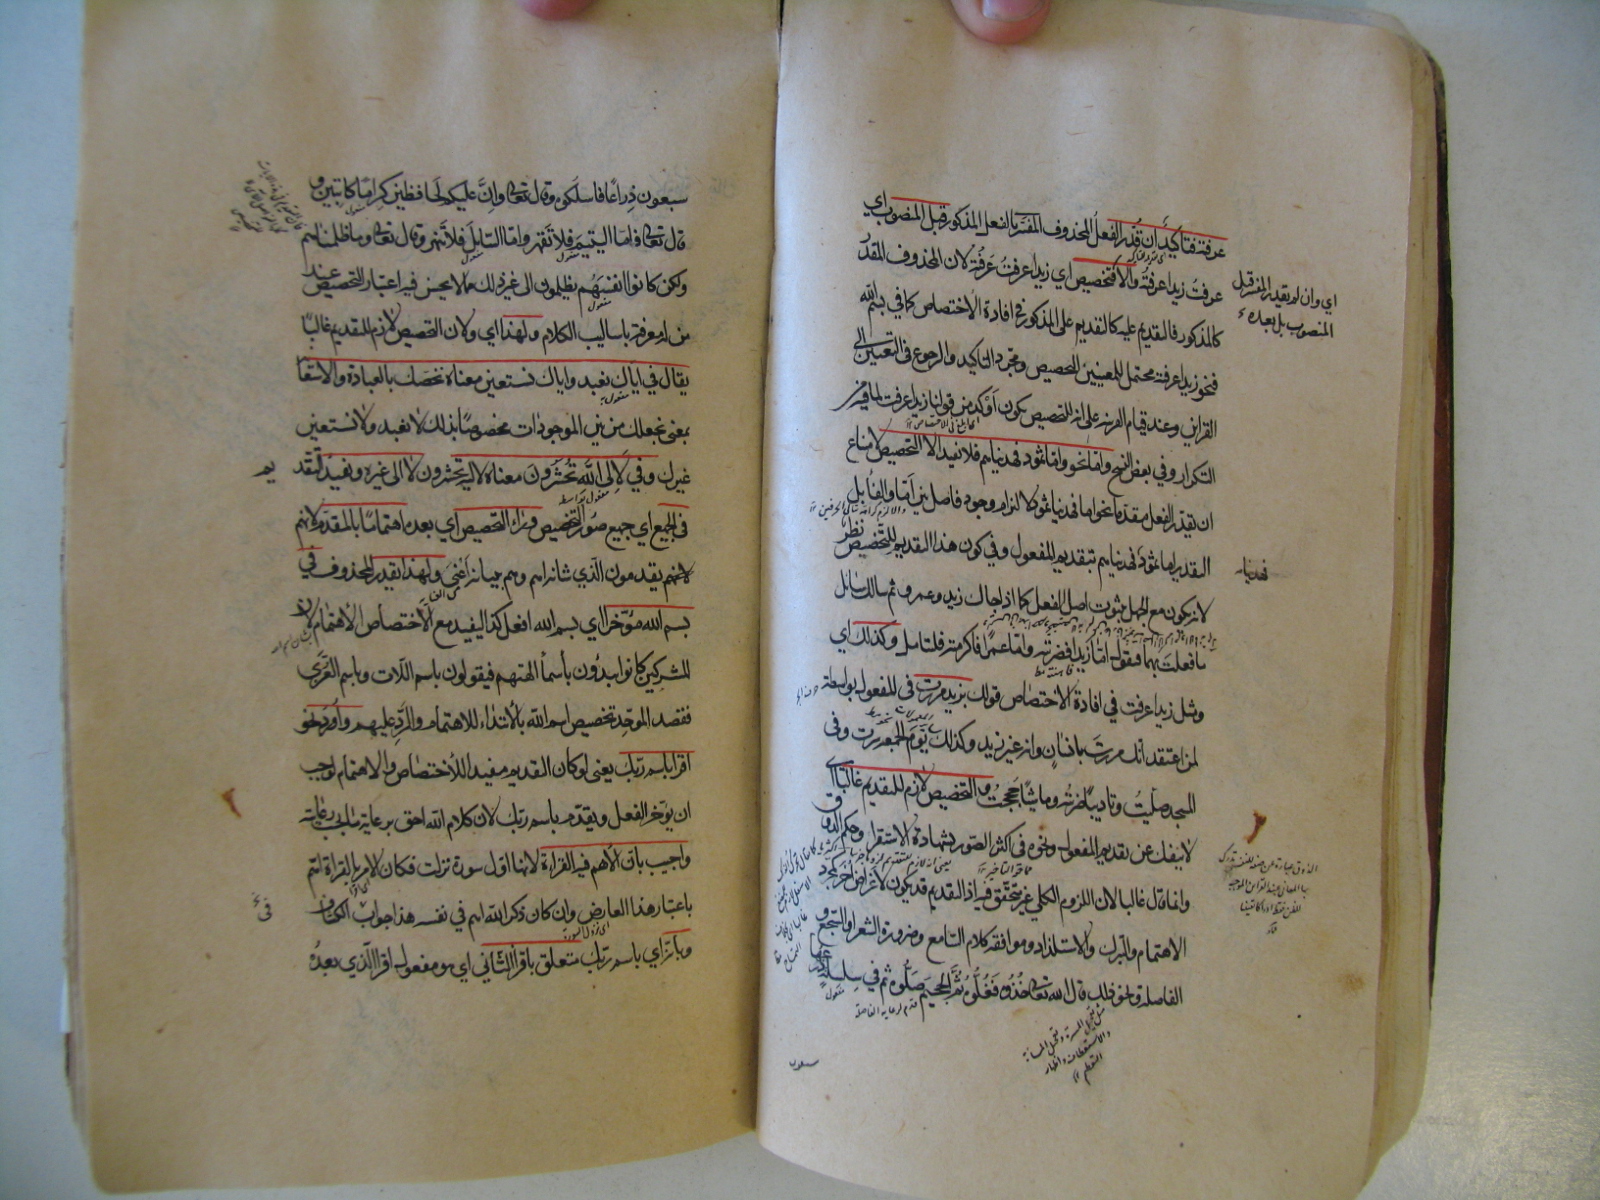 عرفته فتأكيد ان قدر الفعل المحذوف المفسر بالفعل المذكور قبل المنصوب اي
عرفت زيدا عرفته والا فتخصيص اي زيدا عرفت عرفته لان المحذوف المقدر
كالمذكور فالتقديم عليه كالتقديم على المذكور في افادة الاختصاص كما في بسم الله
فنحو زيدا عرفته محتمل للمعنيين التخصيص ومجرد التاكيد والرجوع في التعيين الى
القراين وعند قيام القرينة على انه للتخصيص يكون اوكد من قولنا زيدا عرفت لما فيه من
التكرار وفي بعض النسخ واما نحو واما ثمود فهديناهم فلا يفيد الا التخصيص لامتناع
ان يقدر الفعل مقدما نحو اما فهدينا ثمود لالتزامهم وجود فاصل بين اما والفاء بل
التقدير اما ثمود فهديناهم بتقديم المفعول وفي كون هذا التقديم للتخصيص نظر
لانه يكون مع الجهل بثبوت اصل الفعل كما اذا جاءك زيد وعمرو ثم سالك سائل
ما فعلت بهما فتقول اما زيدا فضربته واما عمرا فاكرمته فليتامل وكذلك اي
ومثل زيدا عرفت في افادة الاختصاص قولك بزيد مررت في المفعول بواسطة
لمن اعتقد انك مررت بانسان وانه غير زيد وكذلك يوم الجمعة سرت وفي
المسجد صليت وتاديبا ضربته وماشيا حججت والتخصيص لازم للتقديم غالبا اي
لا ينفك عن تقديم المفعول ونحوه في اكثر الصور بشهادة الاستقراء وحكم الذوق
وانما قال غالبا لان اللزوم الكلي غير متحقق فيه اذ التقديم قد يكون لاغراض اخر كمجرد
الاهتمام والتبرك والاستلذاذ وموافقة كلام السامع وضرورة الشعر او السجع و
الفاصلة ونحو ذلك قال الله تعالى خذوه فغلوه ثم الجحيم صلوه ثم في سلسلة ذرعها
اي وان لم يقدر المفسر قبل
المنصوب بل بعده
فهديناهم
سبعون
سبعون ذراعا فاسلكوه وقال تعالى وان عليكم لحافظين كراما كاتبين و
قال تعالى فاما اليتيم فلا تقهر واما السائل فلا تنهر وقال تعالى وما ظلمناهم
ولكن كانوا انفسهم يظلمون الى غير ذلك مما لا يحسن فيه اعتبار التخصيص عند
من له معرفة باساليب الكلام ولهذا اي ولان التخصيص لازم للتقديم غالبا
يقال في اياك نعبد واياك نستعين معناه نخصك بالعبادة والاستعا
بمعنى نجعلك من بين الموجودات مخصوصا بذلك لا نعبد ولا نستعين
غيرك وفي لالى الله تحشرون معناه لاليه تحشرون لا الى غيره ويفيد التقد
يم
في الجميع اي جميع صور التخصيص وراء التخصيص اي بعده اهتماما بالمقدم لانهم
لانهم يقدمون الذي شانه اهم وهم ببيانه اعنى ولهذا يقدر المحذوف في
بسم الله مؤخرا اي بسم الله افعل كذا ليفيد مع الاختصاص الاهتمام لان
المشركين كانوا يبدؤن باسماء الهتهم فيقولون باسم اللات وباسم العزى
فقصد الموحد تخصيص اسم الله بالابتداء للاهتمام والرد عليهم واورد نحو
اقرا باسم ربك يعني لو كان التقديم مفيدا للاختصاص والاهتمام لوجب
ان يؤخر الفعل ويقدم باسم ربك لان كلام الله احق برعاية ما يجب رعايته
واجيب بان الاهم فيه القراءة لانها اول سورة نزلت فكان الامر بالقراءة اهم
باعتبار هذا العارض وان كان ذكر الله اهم في نفسه هذا جواب الكشاف
وبانه اي باسم ربك متعلق باقرا الثاني اي هو مفعول اقرا الذي بعده